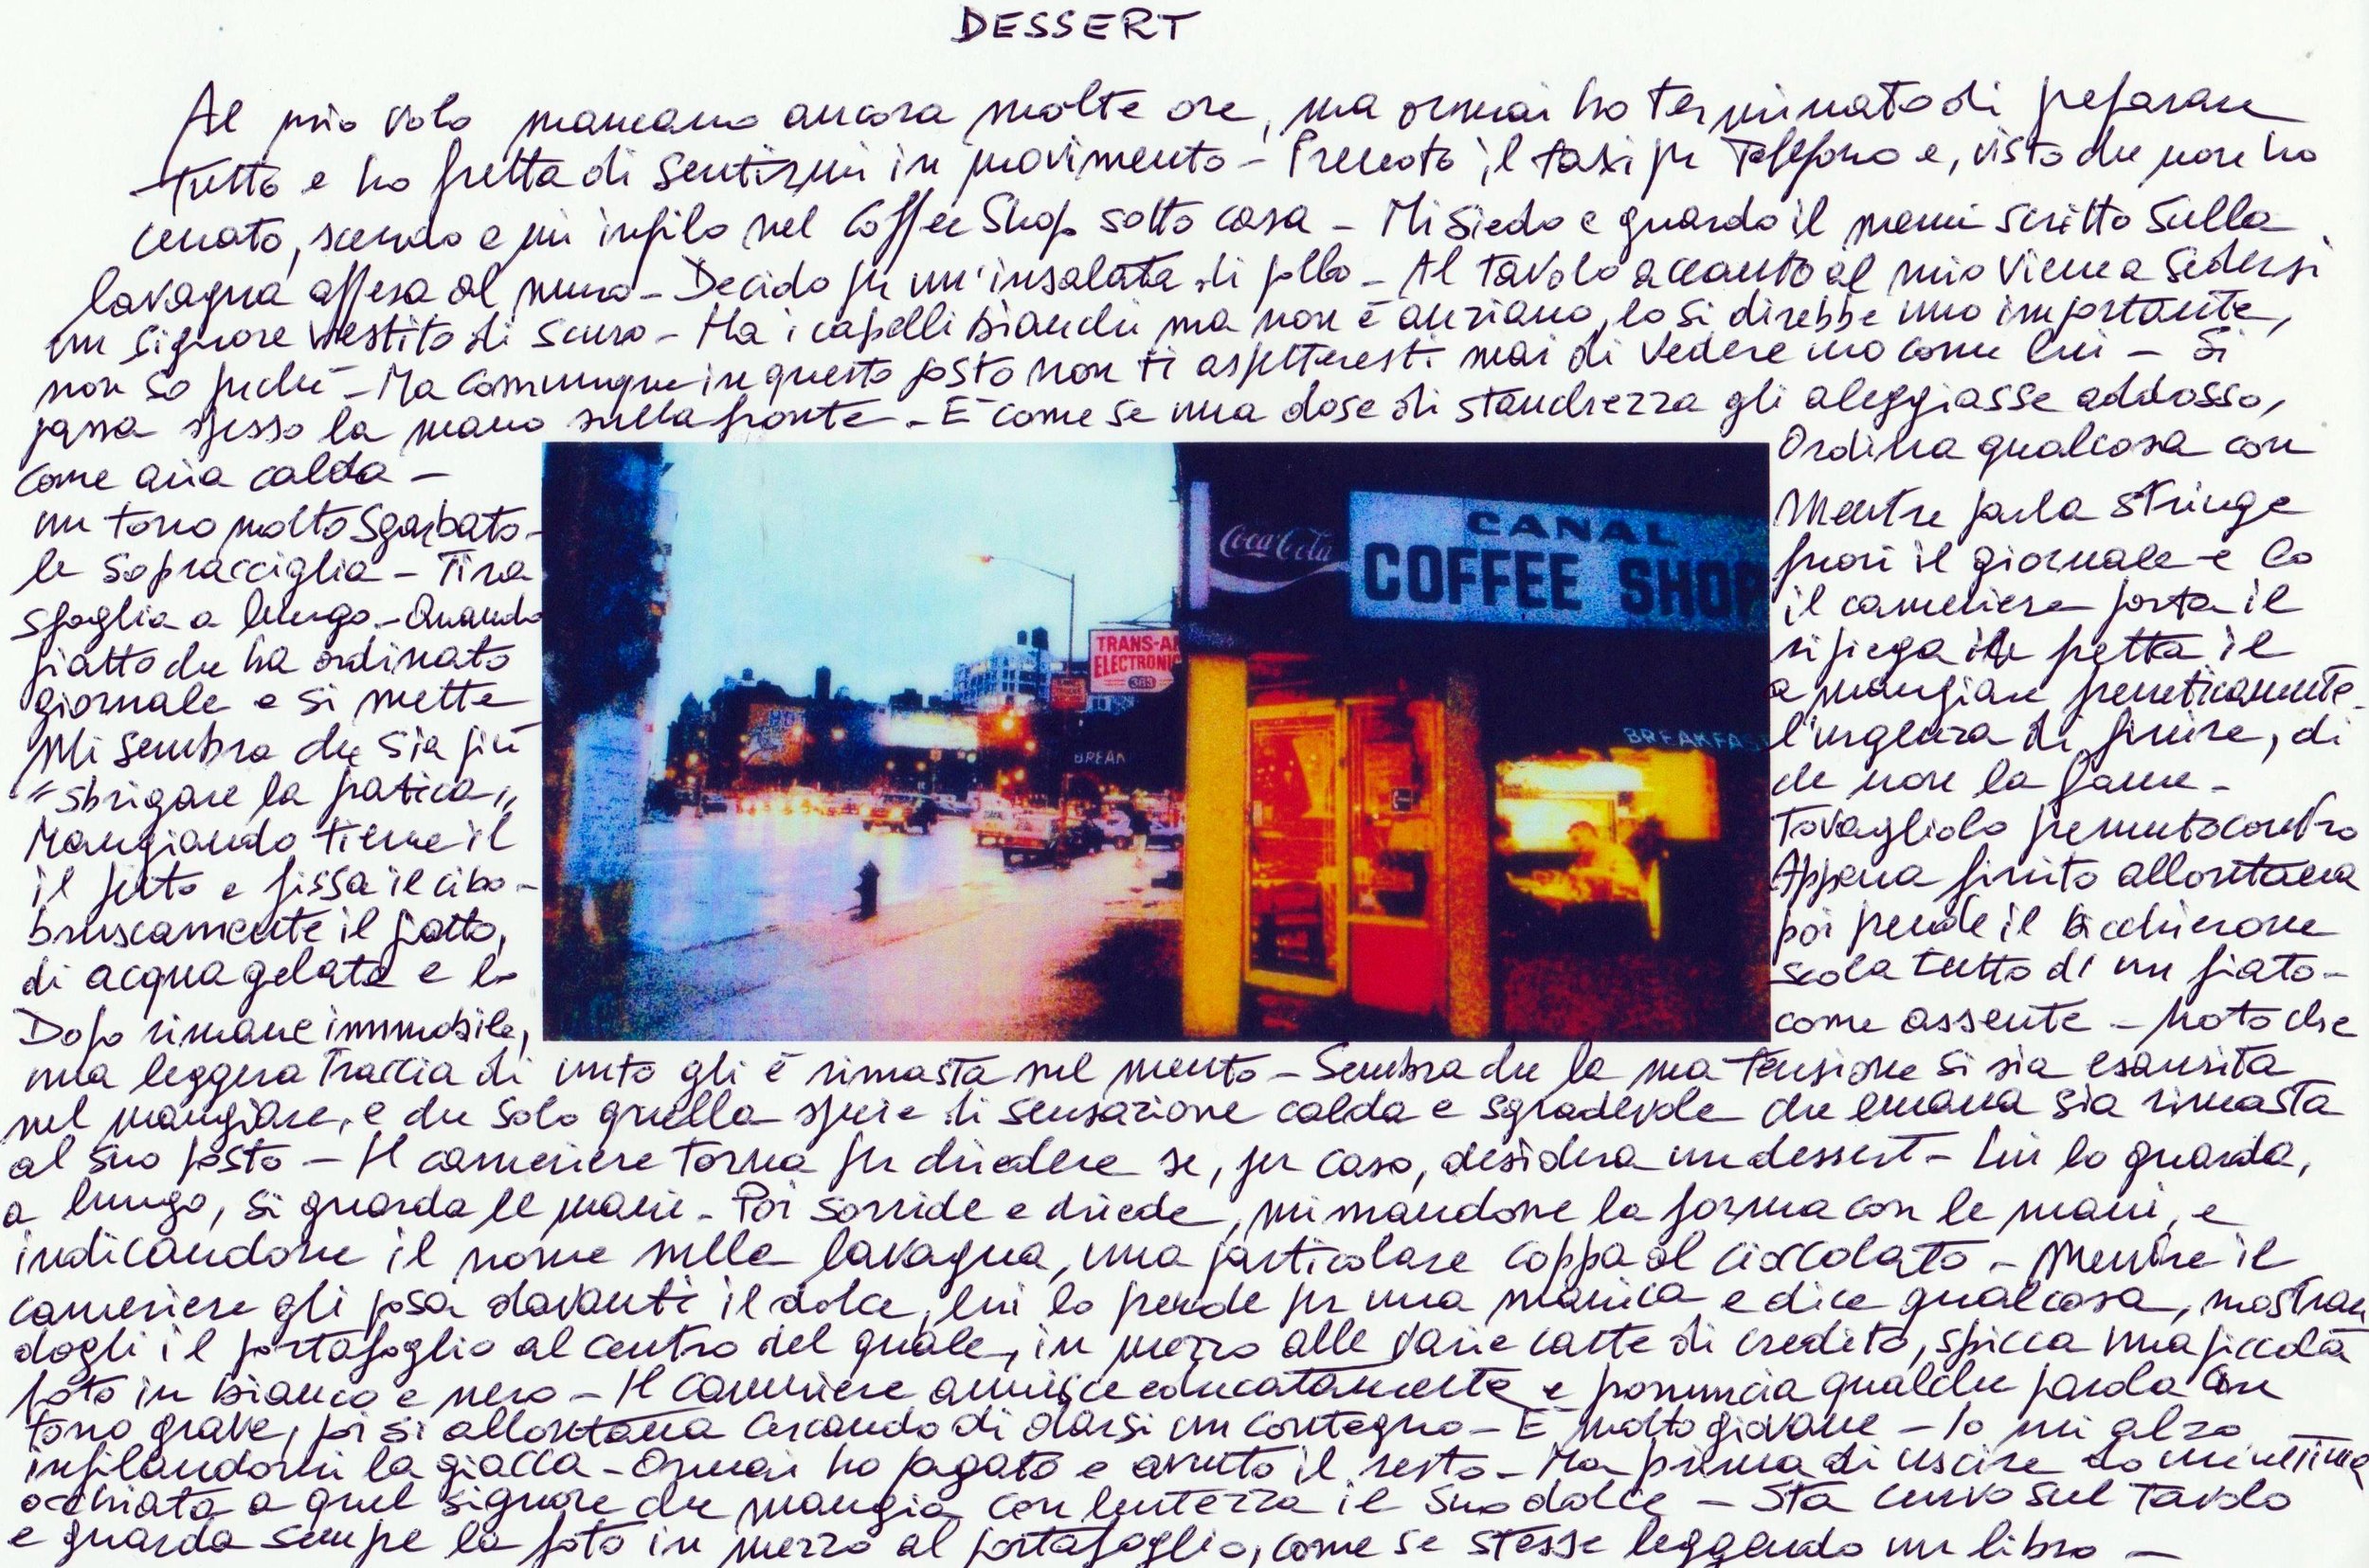 DESSERT
Al mio volo mancano ancora molte ore, ma ormai ho terminato di preparare
tutto e ho fretta di sentirmi in movimento – Prenoto il taxi per telefono e, visto che non ho
cenato, scendo e mi infilo nel Coffee Shop sotto casa – Mi siedo e guardo il menu scritto sulla
lavagna appesa al muro – Decido per un'insalata di pollo – Al tavolo accanto al mio viene a sedersi
un signore vestito di scuro – Ha i capelli bianchi ma non è anziano, lo si direbbe uno importante,
non so perché – Ma comunque in questo posto non ti aspetteresti mai di vedere uno come lui – Si
passa spesso la mano sulla fronte – È come se una dose di stanchezza gli aleggiasse addosso,
come aria calda – Ordina qualcosa con
un tono molto sgarbato – Mentre parla stringe
le sopracciglia – Tira fuori il giornale e lo
sfoglia a lungo – Quando il cameriere porta il
piatto che ha ordinato ripiega in fretta il
giornale e si mette a mangiare freneticamente –
Mi sembra che sia più l'urgenza di finire, di
"sbrigare la pratica", che non la fame –
Mangiando tiene il tovagliolo premuto contro
il petto e fissa il cibo – Appena finito allontana
bruscamente il piatto, poi prende il bicchierone
di acqua gelata e lo scola tutto di un fiato –
Dopo rimane immobile, come assente – Noto che
una leggera traccia di unto gli è rimasta sul mento – Sembra che la sua tensione si sia esaurita
nel mangiare, e che solo quella specie di sensazione calda e sgradevole che emana sia rimasta
al suo posto – Il cameriere torna per chiedere se, per caso, desidera un dessert – Lui lo guarda,
a lungo, si guarda le mani – Poi sorride e chiede, mimandone la forma con le mani, e
indicandone il nome sulla lavagna, una particolare coppa al cioccolato – Mentre il
cameriere gli posa davanti il dolce, lui lo prende per una manica e dice qualcosa, mostran
dogli il portafoglio al centro del quale, in mezzo alle varie carte di credito, spicca una piccola
foto in bianco e nero – Il cameriere annuisce educatamente e pronuncia qualche parola con
tono grave, poi si allontana cercando di darsi un contegno – È molto giovane – Io mi alzo
infilandomi la giacca – Ormai ho pagato e avuto il resto – Ma prima di uscire do un'ultima
occhiata a quel signore che mangia con lentezza il suo dolce – Sta curvo sul tavolo
e guarda sempre la foto in mezzo al portafoglio, come se stesse leggendo un libro –
Coca-Cola
CANAL
COFFEE SHOP
TRANS-A
ELECTRONIC
383
BREAK
BREAKFAS